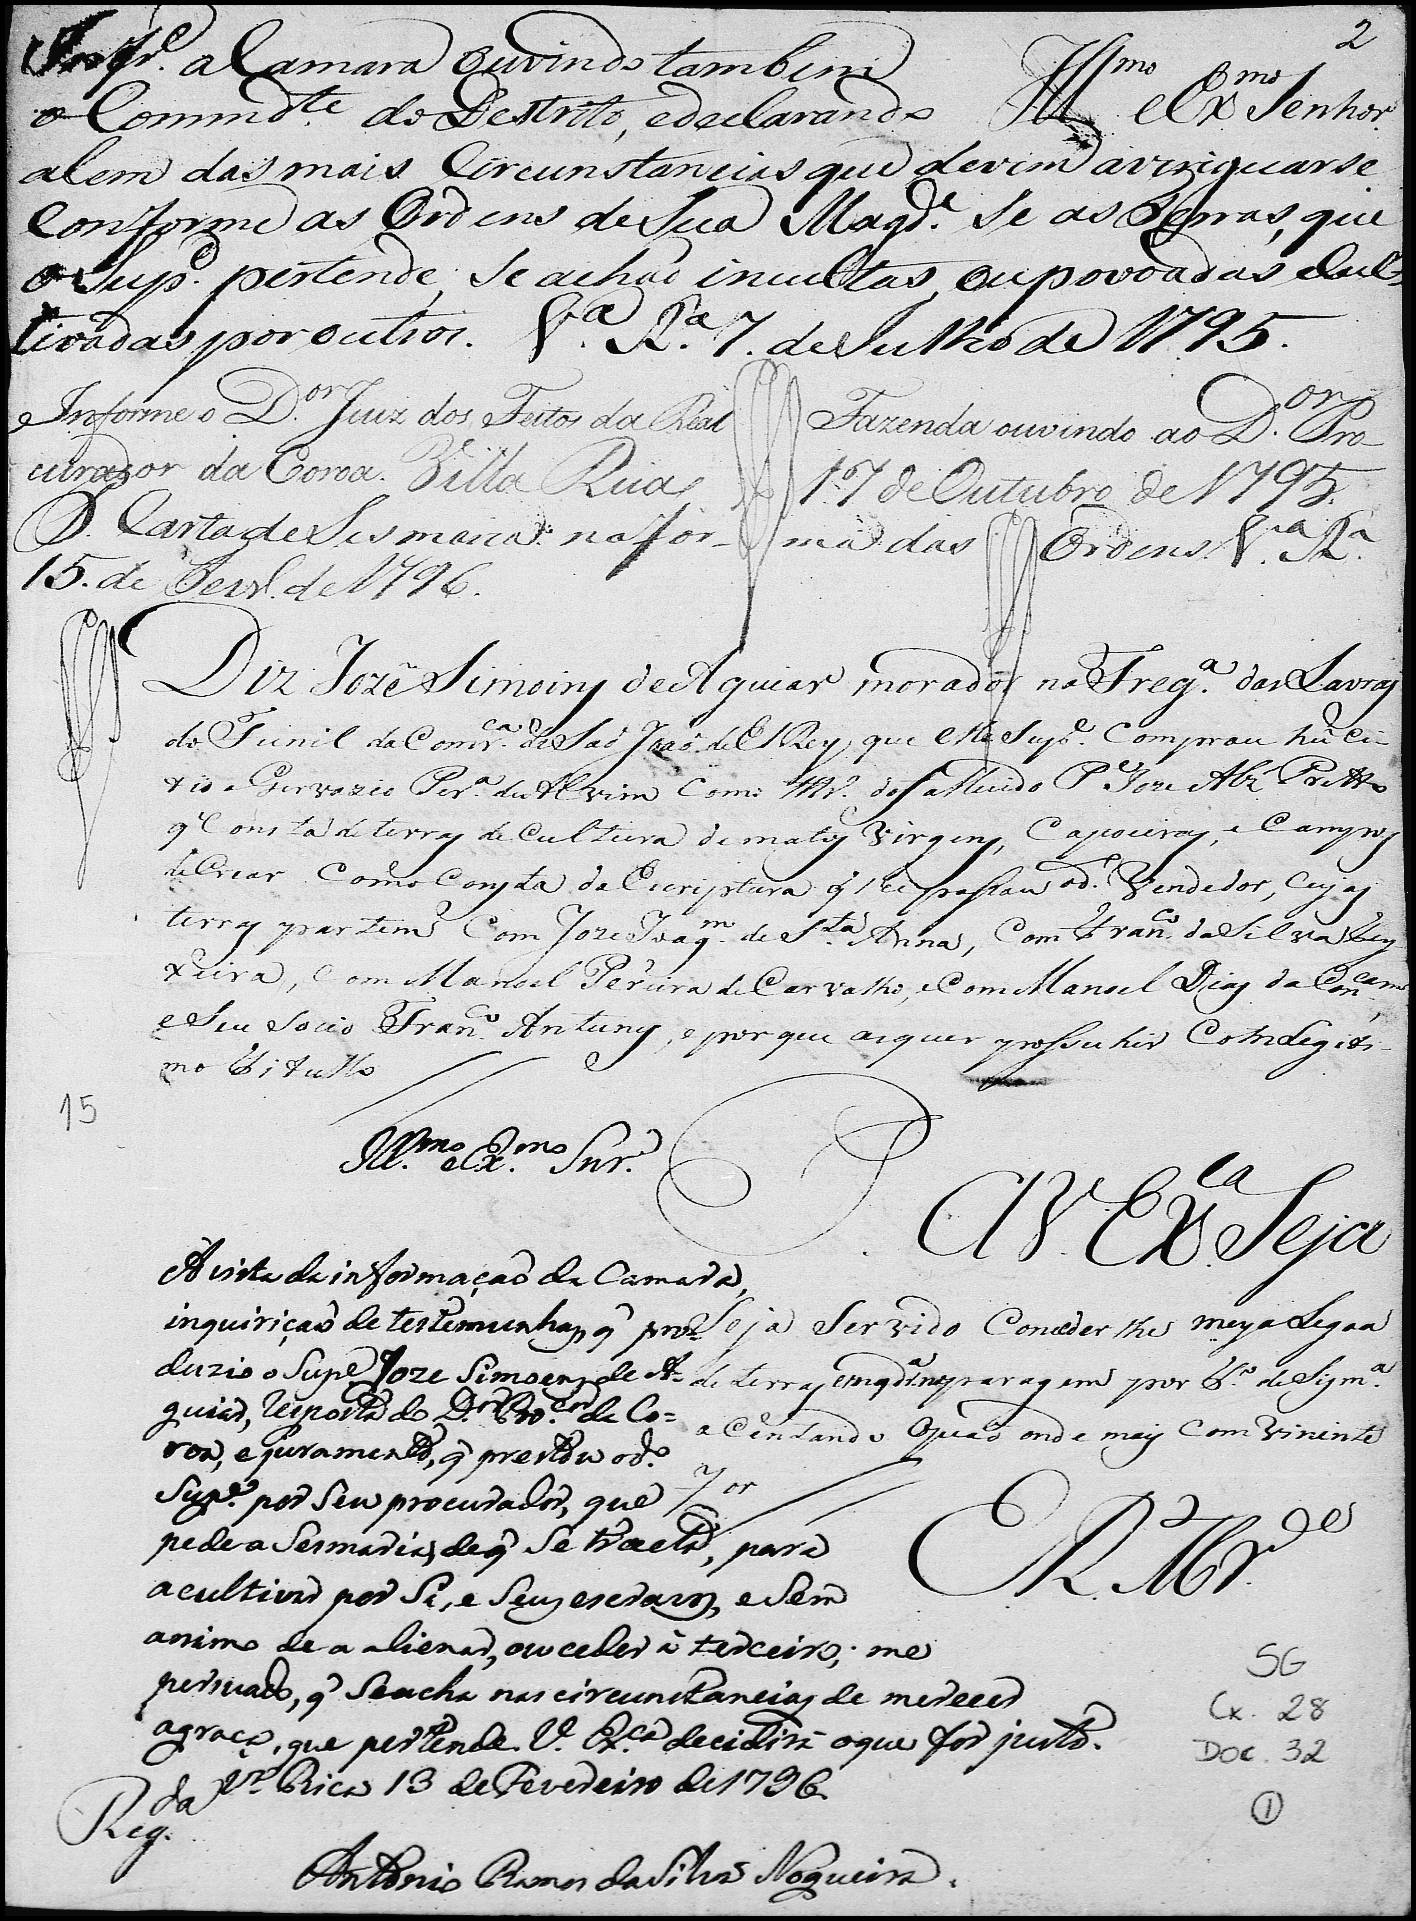 2
Infr.e a Camara ouvindo tambem
o Commd.te do Destrito, e declarando
Ill.mo e Ex.mo Senhor
alem das mais Circunstancias que devem averiguarse
Conforme as Ordens de Sua Magd.e Se as terras, que
o Sup.e pertende, se achaõ incultas, ou povoadas e Cul-
tivadas por outros. V.a R.a 7. de Julho de 1795.
Informe o D.or Juiz dos Feitos da Real Fazenda ouvindo ao D.or Pro-
curador da Coroa. Villa Rica 17 de Outubro de 1795.
P. Carta de Sesmaria na for- ma das Ordens. V.a R.a
15. de Fevr.o de 1796.
Diz Joze Simoins de Aguiar morador na Freg.a das Lavras
do Funil da Comr.ca de Saõ Joaõ del Rey, que elle Sup.e Comprou hũ Ci-
tio a Gervazio Per.a de Alvim Como do falleuido P.e Joze
q̃ Consta de terras de Cultura de matos Virgens, Capoeiras, e Campos
de Criar Como Consta da Escriptura q̃ lhe passou o d.o Vendedor, Cujas
terras partem Com Joze Joaq.m de S.ta Anna, Com Fran.co da Silva Tey-
xeira, Com Manoel Pereira de Carvalho, e Com Manoel Dias da
e Seu Socio Fran.co Antunes, e por que as quer possuhir Com Legiti-
mo titullo
15
Ill.mo e Ex.mo Snr.
P. A V. Ex.ca Seja
A vista da informaçaõ da Camara,
inquiriçaõ de testemunhas, q̃ pro-
duzio o Sup.e Joze Simoens de A-
guiar, resposta do D.or Pro.cor da Co-
roa, e juramento, q̃ prestou o d.o
Sup.e por seu procurador, que
pede a Sesmaria, de q̃ se tracta, para
a cultivar por Si, e Seus escravos, e Sem
animo de a alienar, ou ceder à terceiro; me
persuado, q̃ se acha nas circunstancias de merecer
a graça, que pertende. V. Ex.ca decidirá o que for justo.
V.a Rica 13 de Fevereiro de 1796
Seja Servido Conceder lhe meya Legoa
de terras em qd.ra na paragem por t.o de Sesm.a
acentando opiaõ onde mais Comviniente
for
E R. M.ce
Reg.da
Antonio Ramos da Silva Nogueira.
SG
Cx. 28
Doc. 32
1